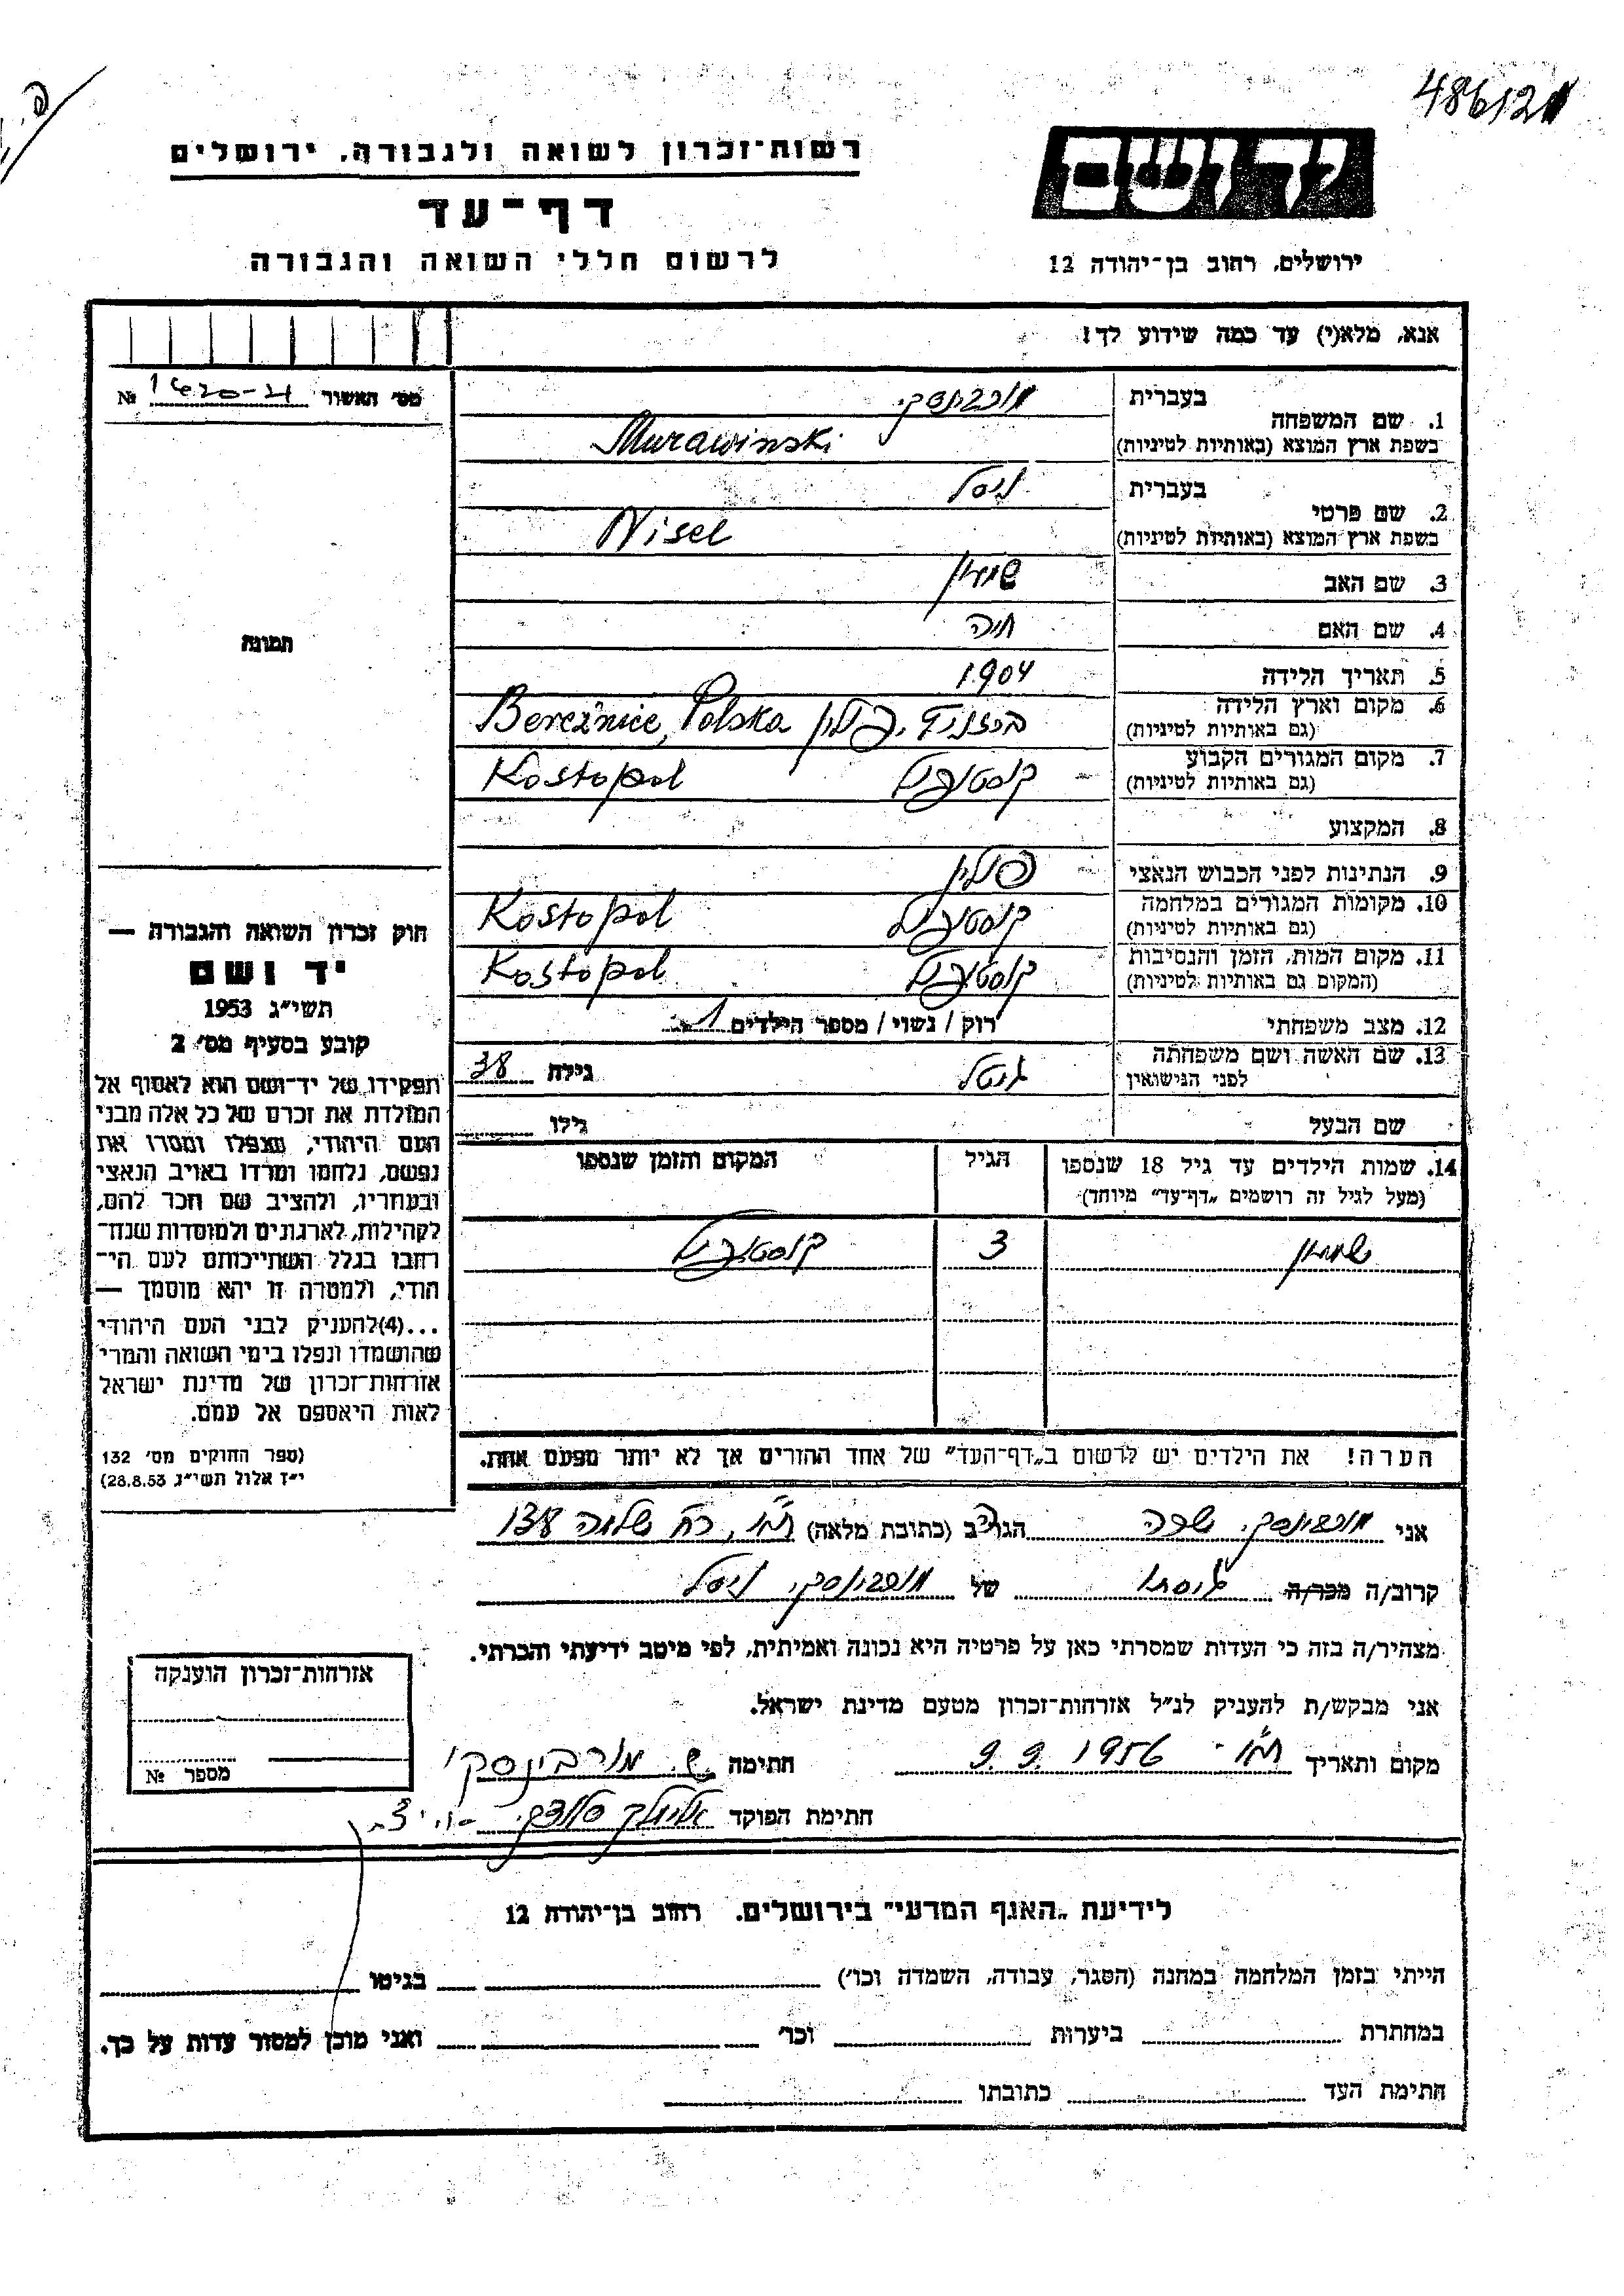 486121
רשות־זכרון לשואה ולגבורה, ירושלים
יד ושם
דף־עד
לרשום חללי השואה והגבורה
ירושלים, רחוב בן־יהודה 12
אנא, מלא(י) עד כמה שידוע לך!
מס׳ האשור 1420-21 №
1. שם המשפחה
בעברית מורבינסקי
בשפת ארץ המוצא (באותיות לטיניות) Murawinski
2. שם פרטי
בעברית ניסל
בשפת ארץ המוצא (באותיות לטיניות) Nisel
3. שם האב שמעון
4. שם האם חיה
5. תאריך הלידה 1904
6. מקום וארץ הלידה
(גם באותיות לטיניות) פולין Bereźnice, Polska
7. מקום המגורים הקבוע
(גם באותיות לטיניות) קוסטופול Kostopol
8. המקצוע
9. הנתינות לפני הכבוש הנאצי פולין
10. מקומות המגורים במלחמה
(גם באותיות לטיניות) קוסטופול Kostopol
11. מקום המות, הזמן והנסיבות
(המקום גם באותיות לטיניות) קוסטופול Kostopol
12. מצב משפחתי רוק / נשוי / מספר הילדים 1
13. שם האשה ושם משפחתה
לפני הנישואין גיטל גילה 38
שם הבעל גילו
14. שמות הילדים עד גיל 18 שנספו הגיל המקום והזמן שנספו
(מעל לגיל זה רושמים „דף־עד״ מיוחד)
שמעון 3 קוסטופול
הערה! את הילדים יש לרשום ב„דף־העד״ של אחד ההורים אך לא יותר מפעם אחת.
תמונה
חוק זכרון השואה והגבורה —
יד ושם
תשי״ג 1953
קובע בסעיף מס׳ 2
תפקידו של יד־ושם הוא לאסוף אל
המולדת את זכרם של כל אלה מבני
העם היהודי, שנפלו ומסרו את
נפשם, נלחמו ומרדו באויב הנאצי
ובעוזריו, ולהציב שם וזכר להם,
לקהילות, לארגונים ולמוסדות שנח־
רבו בגלל השתייכותם לעם הי־
הודי, ולמטרה זו יהא מוסמך —
...(4)להעניק לבני העם היהודי
שהושמדו ונפלו בימי השואה והמרי
אזרחות־זכרון של מדינת ישראל
לאות היאספם אל עמם.
(ספר החוקים מס׳ 132
י״ז אלול תשי״ג 28.8.53)
אני מורבינסקי שרה הגר/ב (כתובת מלאה) שלמה
קרוב/ה מכר/ה גיסתו של מורבינסקי ניסל
מצהיר/ה בזה כי העדות שמסרתי כאן על פרטיה היא נכונה ואמיתית, לפי מיטב ידיעתי והכרתי.
אני מבקש/ת להעניק לנ״ל אזרחות־זכרון מטעם מדינת ישראל.
מקום ותאריך 9.9.1956 חתימה ש. מורבינסקי
חתימת הפוקד
אזרחות־זכרון הוענקה
מספר №
לידיעת „האגף המדעי״ בירושלים. רחוב בן־יהודה 12
הייתי בזמן המלחמה במחנה (הסגר, עבודה, השמדה וכו׳) בגיטו
במחתרת ביערות וכו׳ ואני מוכן למסור עדות על כך.
חתימת העד כתובתו